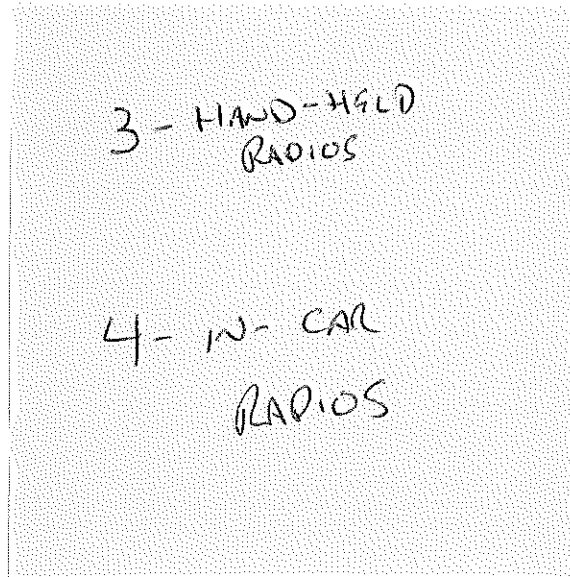 3 - HAND-HELD
RADIOS
4 - IN - CAR
RADIOS